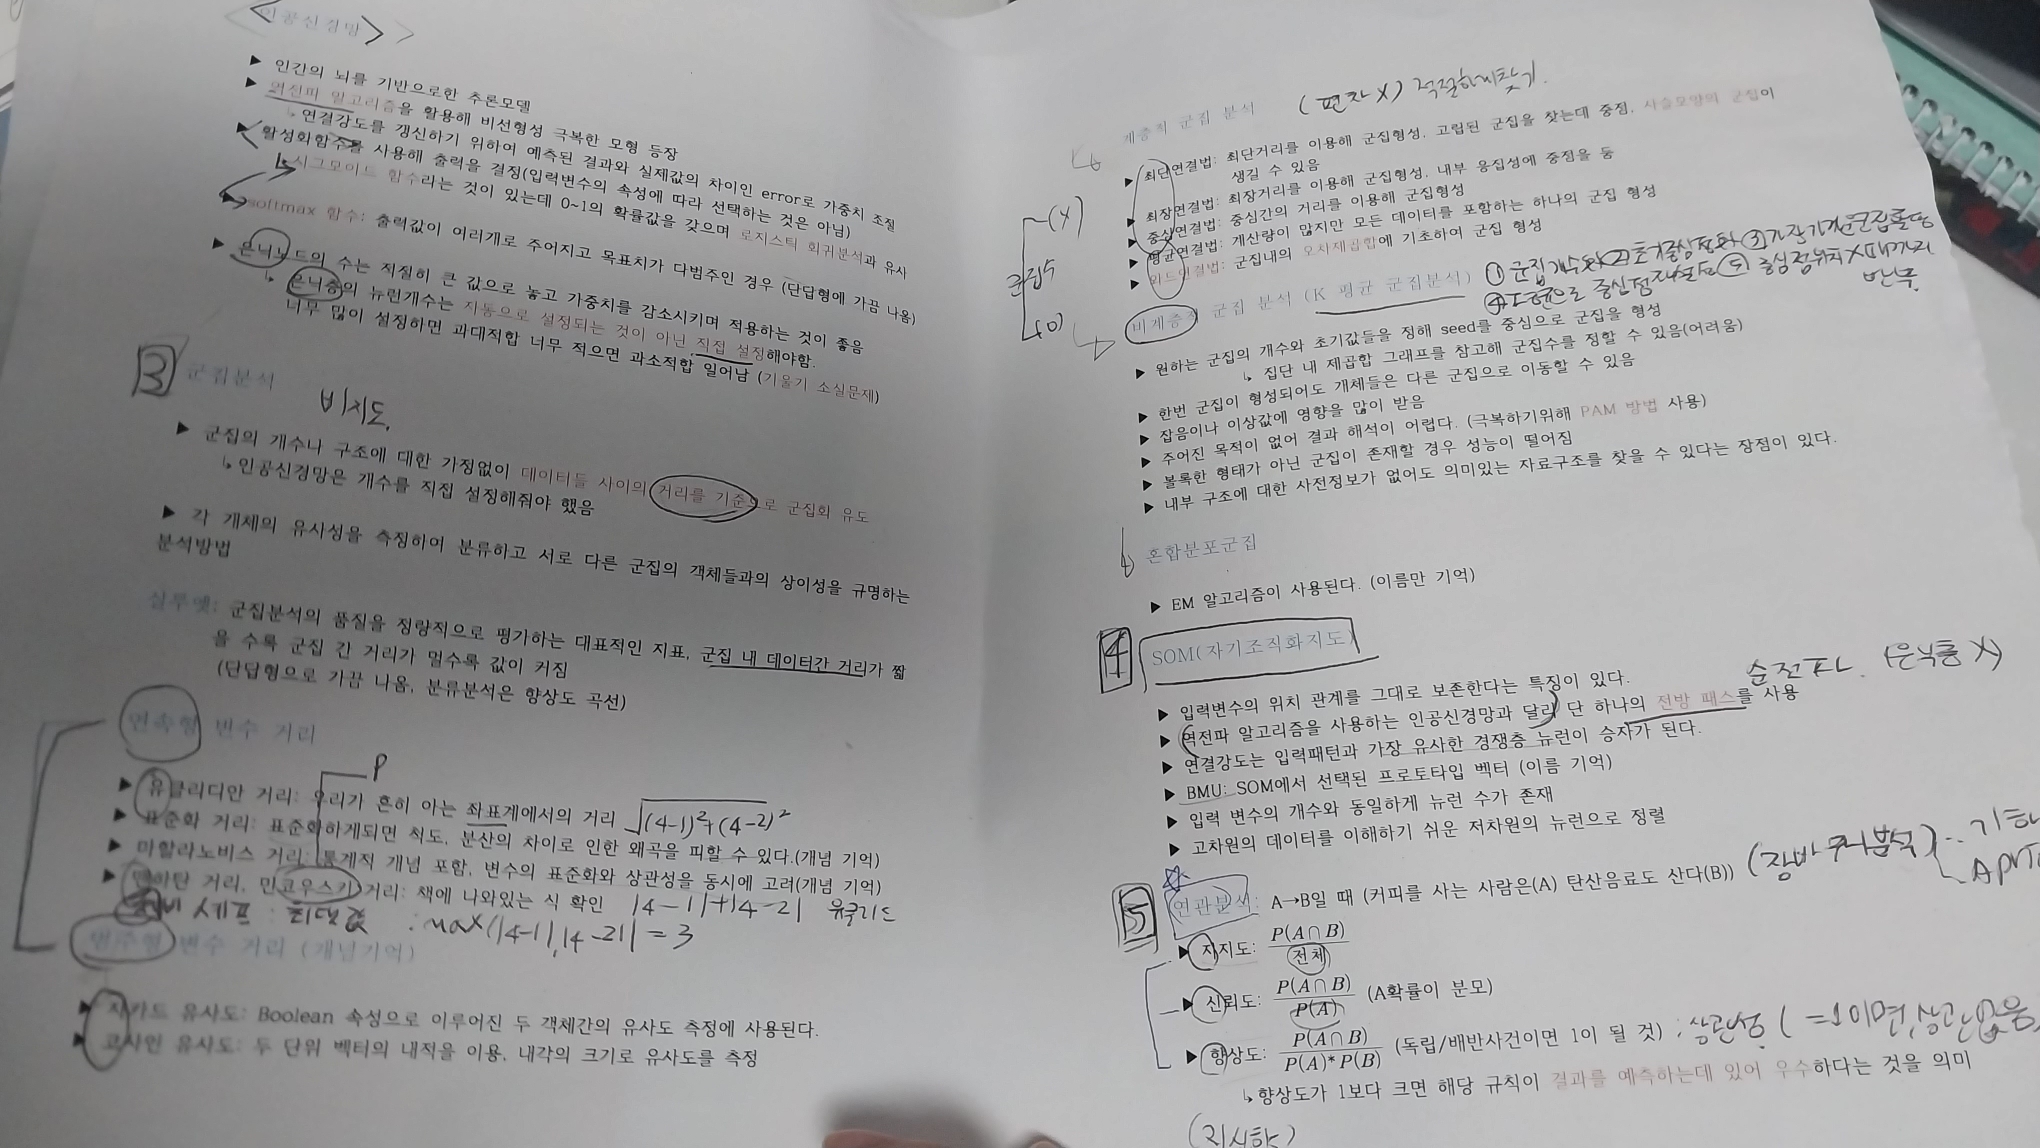 인공신경망
▶ 인간의 뇌를 기반으로한 추론모델
▶ 역전파 알고리즘을 활용해 비선형성 극복한 모형 등장
↳ 연결강도를 갱신하기 위하여 예측된 결과와 실제값의 차이인 error로 가중치 조절
▶ 활성화함수를 사용해 출력을 결정(입력변수의 속성에 따라 선택하는 것은 아님)
↳ 시그모이드 함수라는 것이 있는데 0~1의 확률값을 갖으며 로지스틱 회귀분석과 유사
softmax 함수: 출력값이 여러개로 주어지고 목표치가 다범주인 경우 (단답형에 가끔 나옴)
▶ 은닉노드의 수는 적절히 큰 값으로 놓고 가중치를 감소시키며 적용하는 것이 좋음
↳ 은닉층의 뉴런개수는 자동으로 설정되는 것이 아닌 직접 설정해야함.
너무 많이 설정하면 과대적합 너무 적으면 과소적합 일어남 (기울기 소실문제)
3 군집분석
비지도
▶ 군집의 개수나 구조에 대한 가정없이 데이터들 사이의 거리를 기준으로 군집화 유도
↳ 인공신경망은 개수를 직접 설정해줘야 했음
▶ 각 개체의 유사성을 측정하여 분류하고 서로 다른 군집의 객체들과의 상이성을 규명하는
분석방법
실루엣: 군집분석의 품질을 정량적으로 평가하는 대표적인 지표, 군집 내 데이터간 거리가 짧
을 수록 군집 간 거리가 멀수록 값이 커짐
(단답형으로 가끔 나옴, 분류분석은 향상도 곡선)
연속형 변수 거리
P
▶ 유클리디안 거리: 우리가 흔히 아는 좌표계에서의 거리 √(4-1)²+(4-2)²
▶ 표준화 거리: 표준화하게되면 척도, 분산의 차이로 인한 왜곡을 피할 수 있다.(개념 기억)
▶ 마할라노비스 거리: 통계적 개념 포함, 변수의 표준화와 상관성을 동시에 고려(개념 기억)
▶ 맨하탄 거리, 민코우스키 거리: 책에 나와있는 식 확인 |4-1|+|4-2| 유클리드
체비셰프 : 최대값 : max(|4-1|,|4-2|) = 3
범주형 변수 거리 (개념기억)
▶ 자카드 유사도: Boolean 속성으로 이루어진 두 객체간의 유사도 측정에 사용된다.
▶ 코사인 유사도: 두 단위 벡터의 내적을 이용, 내각의 크기로 유사도를 측정
계층적 군집 분석 (편차X) 적절하게찾기.
▶ 최단연결법: 최단거리를 이용해 군집형성, 고립된 군집을 찾는데 중점, 사슬모양의 군집이
생길 수 있음
▶ 최장연결법: 최장거리를 이용해 군집형성, 내부 응집성에 중점을 둠
▶ 중심연결법: 중심간의 거리를 이용해 군집형성
▶ 평균연결법: 계산량이 많지만 모든 데이터를 포함하는 하나의 군집 형성
▶ 와드연결법: 군집내의 오차제곱합에 기초하여 군집 형성
군집수 (X) (O)
비계층적 군집 분석 (K 평균 군집분석) ① 군집개수 ② 초기 중심 ③ 가장가까운군집
④ 평균으로 중심점 ⑤ 중심점위치X때까지
반복.
▶ 원하는 군집의 개수와 초기값들을 정해 seed를 중심으로 군집을 형성
↳ 집단 내 제곱합 그래프를 참고해 군집수를 정할 수 있음(어려움)
▶ 한번 군집이 형성되어도 개체들은 다른 군집으로 이동할 수 있음
▶ 잡음이나 이상값에 영향을 많이 받음
▶ 주어진 목적이 없어 결과 해석이 어렵다. (극복하기위해 PAM 방법 사용)
▶ 볼록한 형태가 아닌 군집이 존재할 경우 성능이 떨어짐
▶ 내부 구조에 대한 사전정보가 없어도 의미있는 자료구조를 찾을 수 있다는 장점이 있다.
혼합분포군집
▶ EM 알고리즘이 사용된다. (이름만 기억)
4 SOM(자기조직화지도)
순전파. (은닉층 X)
▶ 입력변수의 위치 관계를 그대로 보존한다는 특징이 있다.
▶ 역전파 알고리즘을 사용하는 인공신경망과 달리 단 하나의 전방 패스를 사용
▶ 연결강도는 입력패턴과 가장 유사한 경쟁층 뉴런이 승자가 된다.
▶ BMU: SOM에서 선택된 프로토타입 벡터 (이름 기억)
▶ 입력 변수의 개수와 동일하게 뉴런 수가 존재
▶ 고차원의 데이터를 이해하기 쉬운 저차원의 뉴런으로 정렬
5 연관분석: A→B일 때 (커피를 사는 사람은(A) 탄산음료도 산다(B)) (장바구니분석)
▶ 지지도: P(A∩B) / 전체
▶ 신뢰도: P(A∩B) / P(A) (A확률이 분모)
▶ 향상도: P(A∩B) / P(A)*P(B) (독립/배반사건이면 1이 될 것) ; 상관성 ( =1이면, 상관없음,
↳ 향상도가 1보다 크면 해당 규칙이 결과를 예측하는데 있어 우수하다는 것을 의미